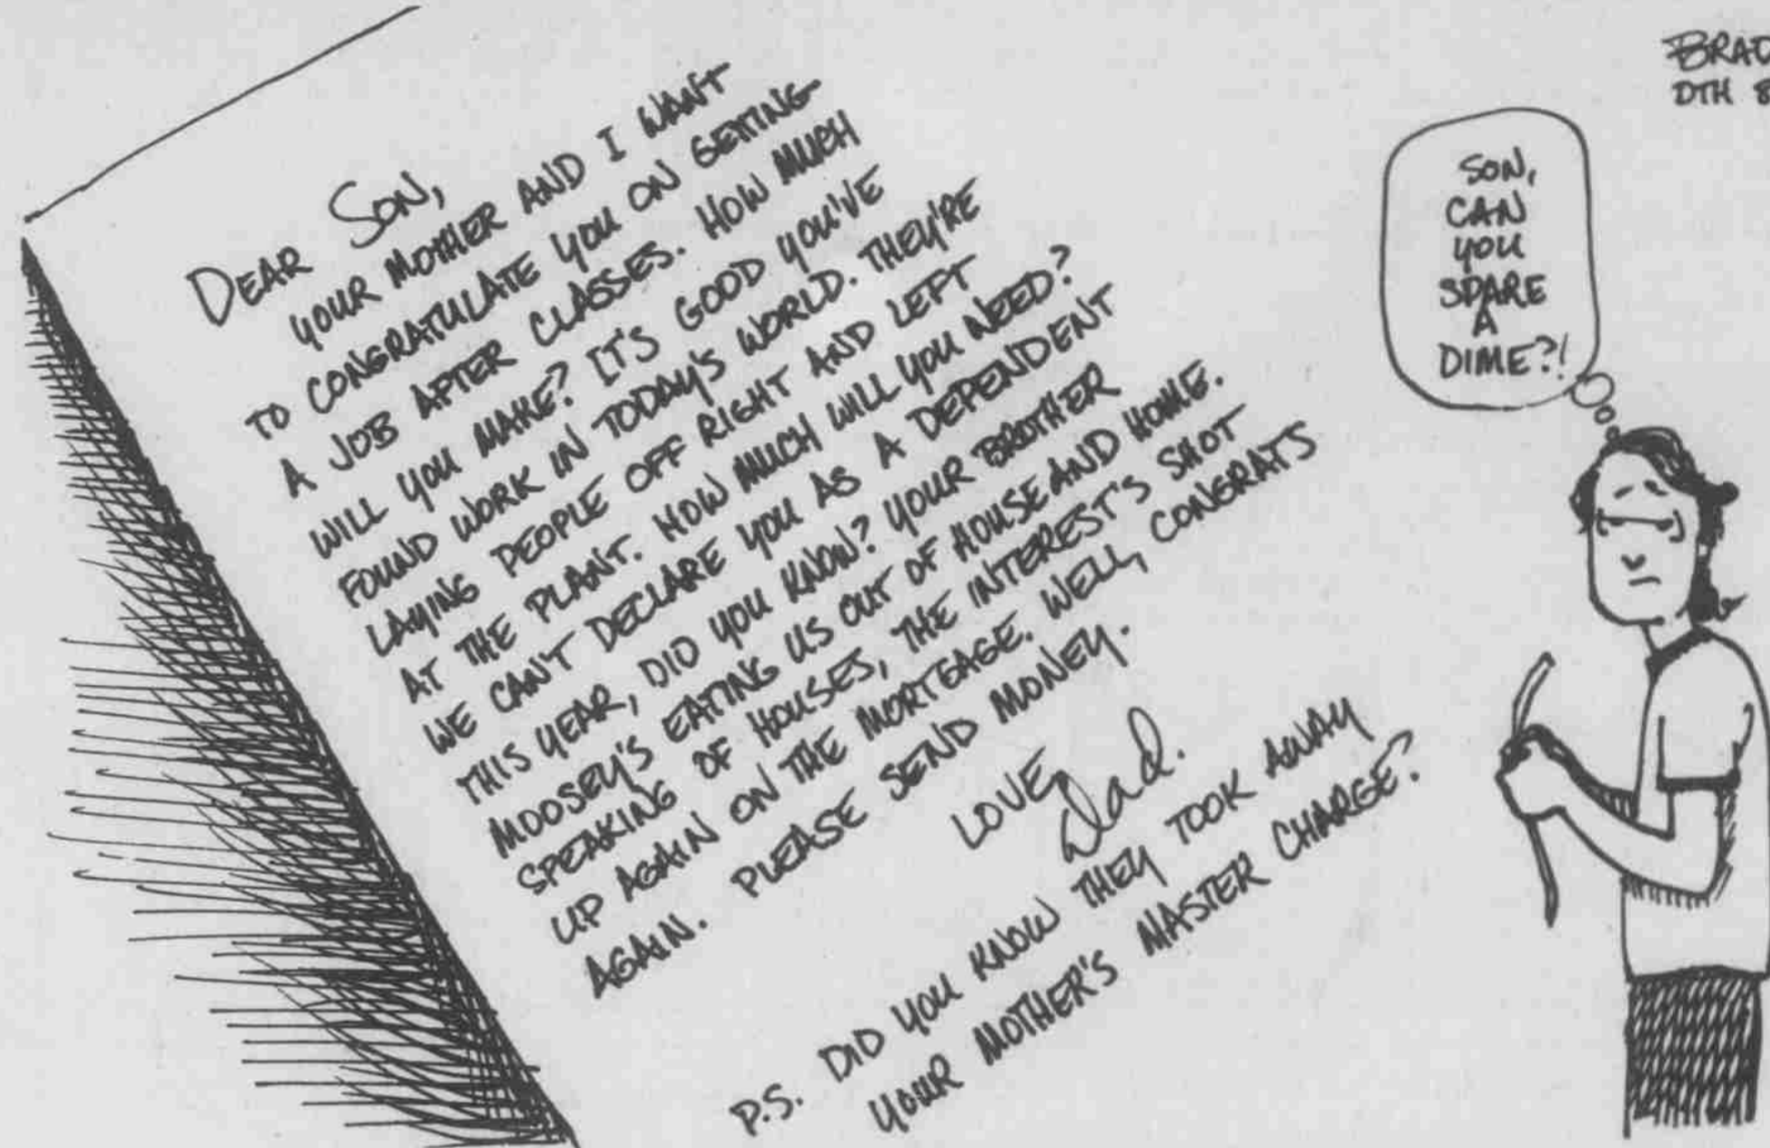 DEAR SON,
YOUR MOTHER AND I WANT
TO CONGRATULATE YOU ON GETTING
A JOB AFTER CLASSES. HOW MUCH
WILL YOU MAKE? IT'S GOOD YOU'VE
FOUND WORK IN TODAY'S WORLD. THEY'RE
LAYING PEOPLE OFF RIGHT AND LEFT
AT THE PLANT. HOW MUCH WILL YOU NEED?
WE CAN'T DECLARE YOU AS A DEPENDENT
THIS YEAR, DID YOU KNOW? YOUR BROTHER
MOOSEY'S EATING US OUT OF HOUSE AND HOME.
SPEAKING OF HOUSES, THE INTEREST'S SHOT
UP AGAIN ON THE MORTGAGE. WELL, CONGRATS
AGAIN. PLEASE SEND MONEY.
LOVE,
Dad.
P.S. DID YOU KNOW THEY TOOK AWAY
YOUR MOTHER'S MASTER CHARGE?
SON,
CAN
YOU
SPARE
A
DIME?!
DTH 8